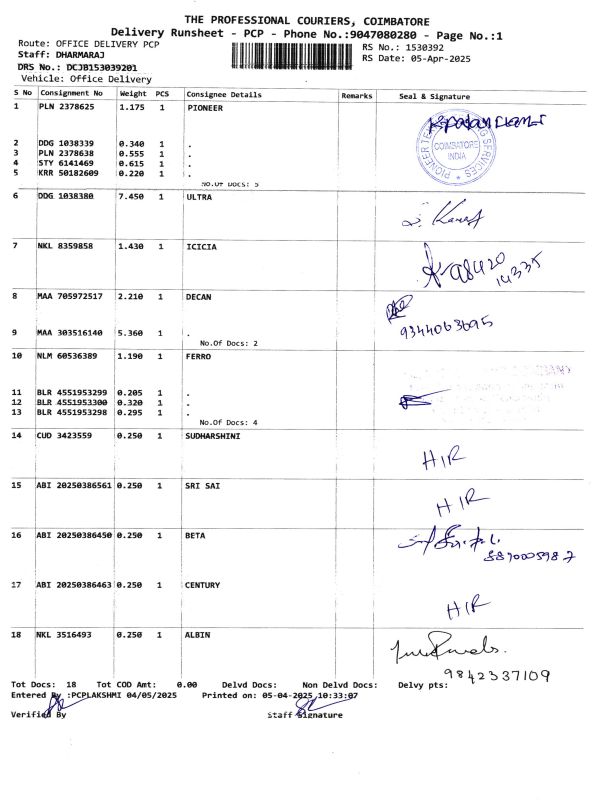 THE PROFESSIONAL COURIERS, COIMBATORE
Delivery Runsheet - PCP - Phone No.:9047080280 - Page No.:1
Route: OFFICE DELIVERY PCP
RS No.: 1530392
Staff: DHARMARAJ
RS Date: 05-Apr-2025
DRS No.: DCJB153039201
Vehicle: Office Delivery
S No Consignment No Weight PCS Consignee Details Remarks Seal & Signature
1 PLN 2378625 1.175 1 PIONEER
COIMBATORE
INDIA
2 DDG 1038339 0.340 1 .
3 PLN 2378638 0.555 1 .
4 STY 6141469 0.615 1 .
5 KRR 50182609 0.220 1 .
No.Of Docs: 5
6 DDG 1038380 7.450 1 ULTRA
7 NKL 8359858 1.430 1 ICICIA
8 MAA 705972517 2.210 1 DECAN
9344063695
9 MAA 303516140 5.360 1 .
No.Of Docs: 2
10 NLM 60536389 1.190 1 FERRO
11 BLR 4551953299 0.205 1 .
12 BLR 4551953300 0.320 1 .
13 BLR 4551953298 0.295 1 .
No.Of Docs: 4
14 CUD 3423559 0.250 1 SUDHARSHINI
H/R
15 ABI 20250386561 0.250 1 SRI SAI
H/R
16 ABI 20250386450 0.250 1 BETA
17 ABI 20250386463 0.250 1 CENTURY
H/R
18 NKL 3516493 0.250 1 ALBIN
9842337109
Tot Docs: 18 Tot COD Amt: 0.00 Delvd Docs: Non Delvd Docs: Delvy pts:
Entered By :PCPLAKSHMI 04/05/2025 Printed on: 05-04-2025,10:33:07
Verified By Staff Signature